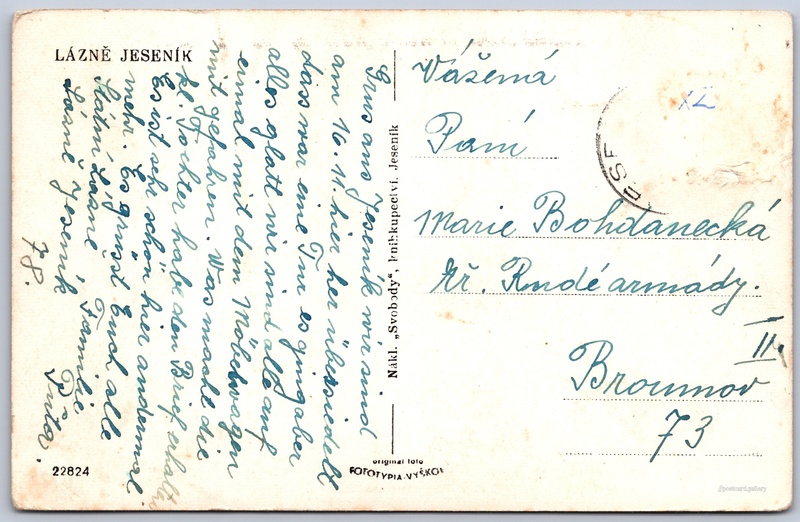 LÁZNĚ JESENÍK
Grus aus Jeseník wir sind
am 16.11. hier her übersiedelt
dass war eine Tur es ging aber
alles glatt wir sind alle auf
einmal mit dem Möbelwagen
mit gefahren. Was macht die
kl. Tochter habe den Brief erhalt
Es ist sehr schön hier andermal
mehr. Es grüsst Euch alle
Familie Puta.
Státní Lasne
Lásně Jeseník
78.
22824
Nákl. „Svobody", knihkupectví, Jeseník
original foto
FOTOTYPIA-VYŠKOV
Vážená
Paní
Marie Bohdanecká
Rudé armády.
II.
Broumov
73
XL
ESE
@postcart.gallery